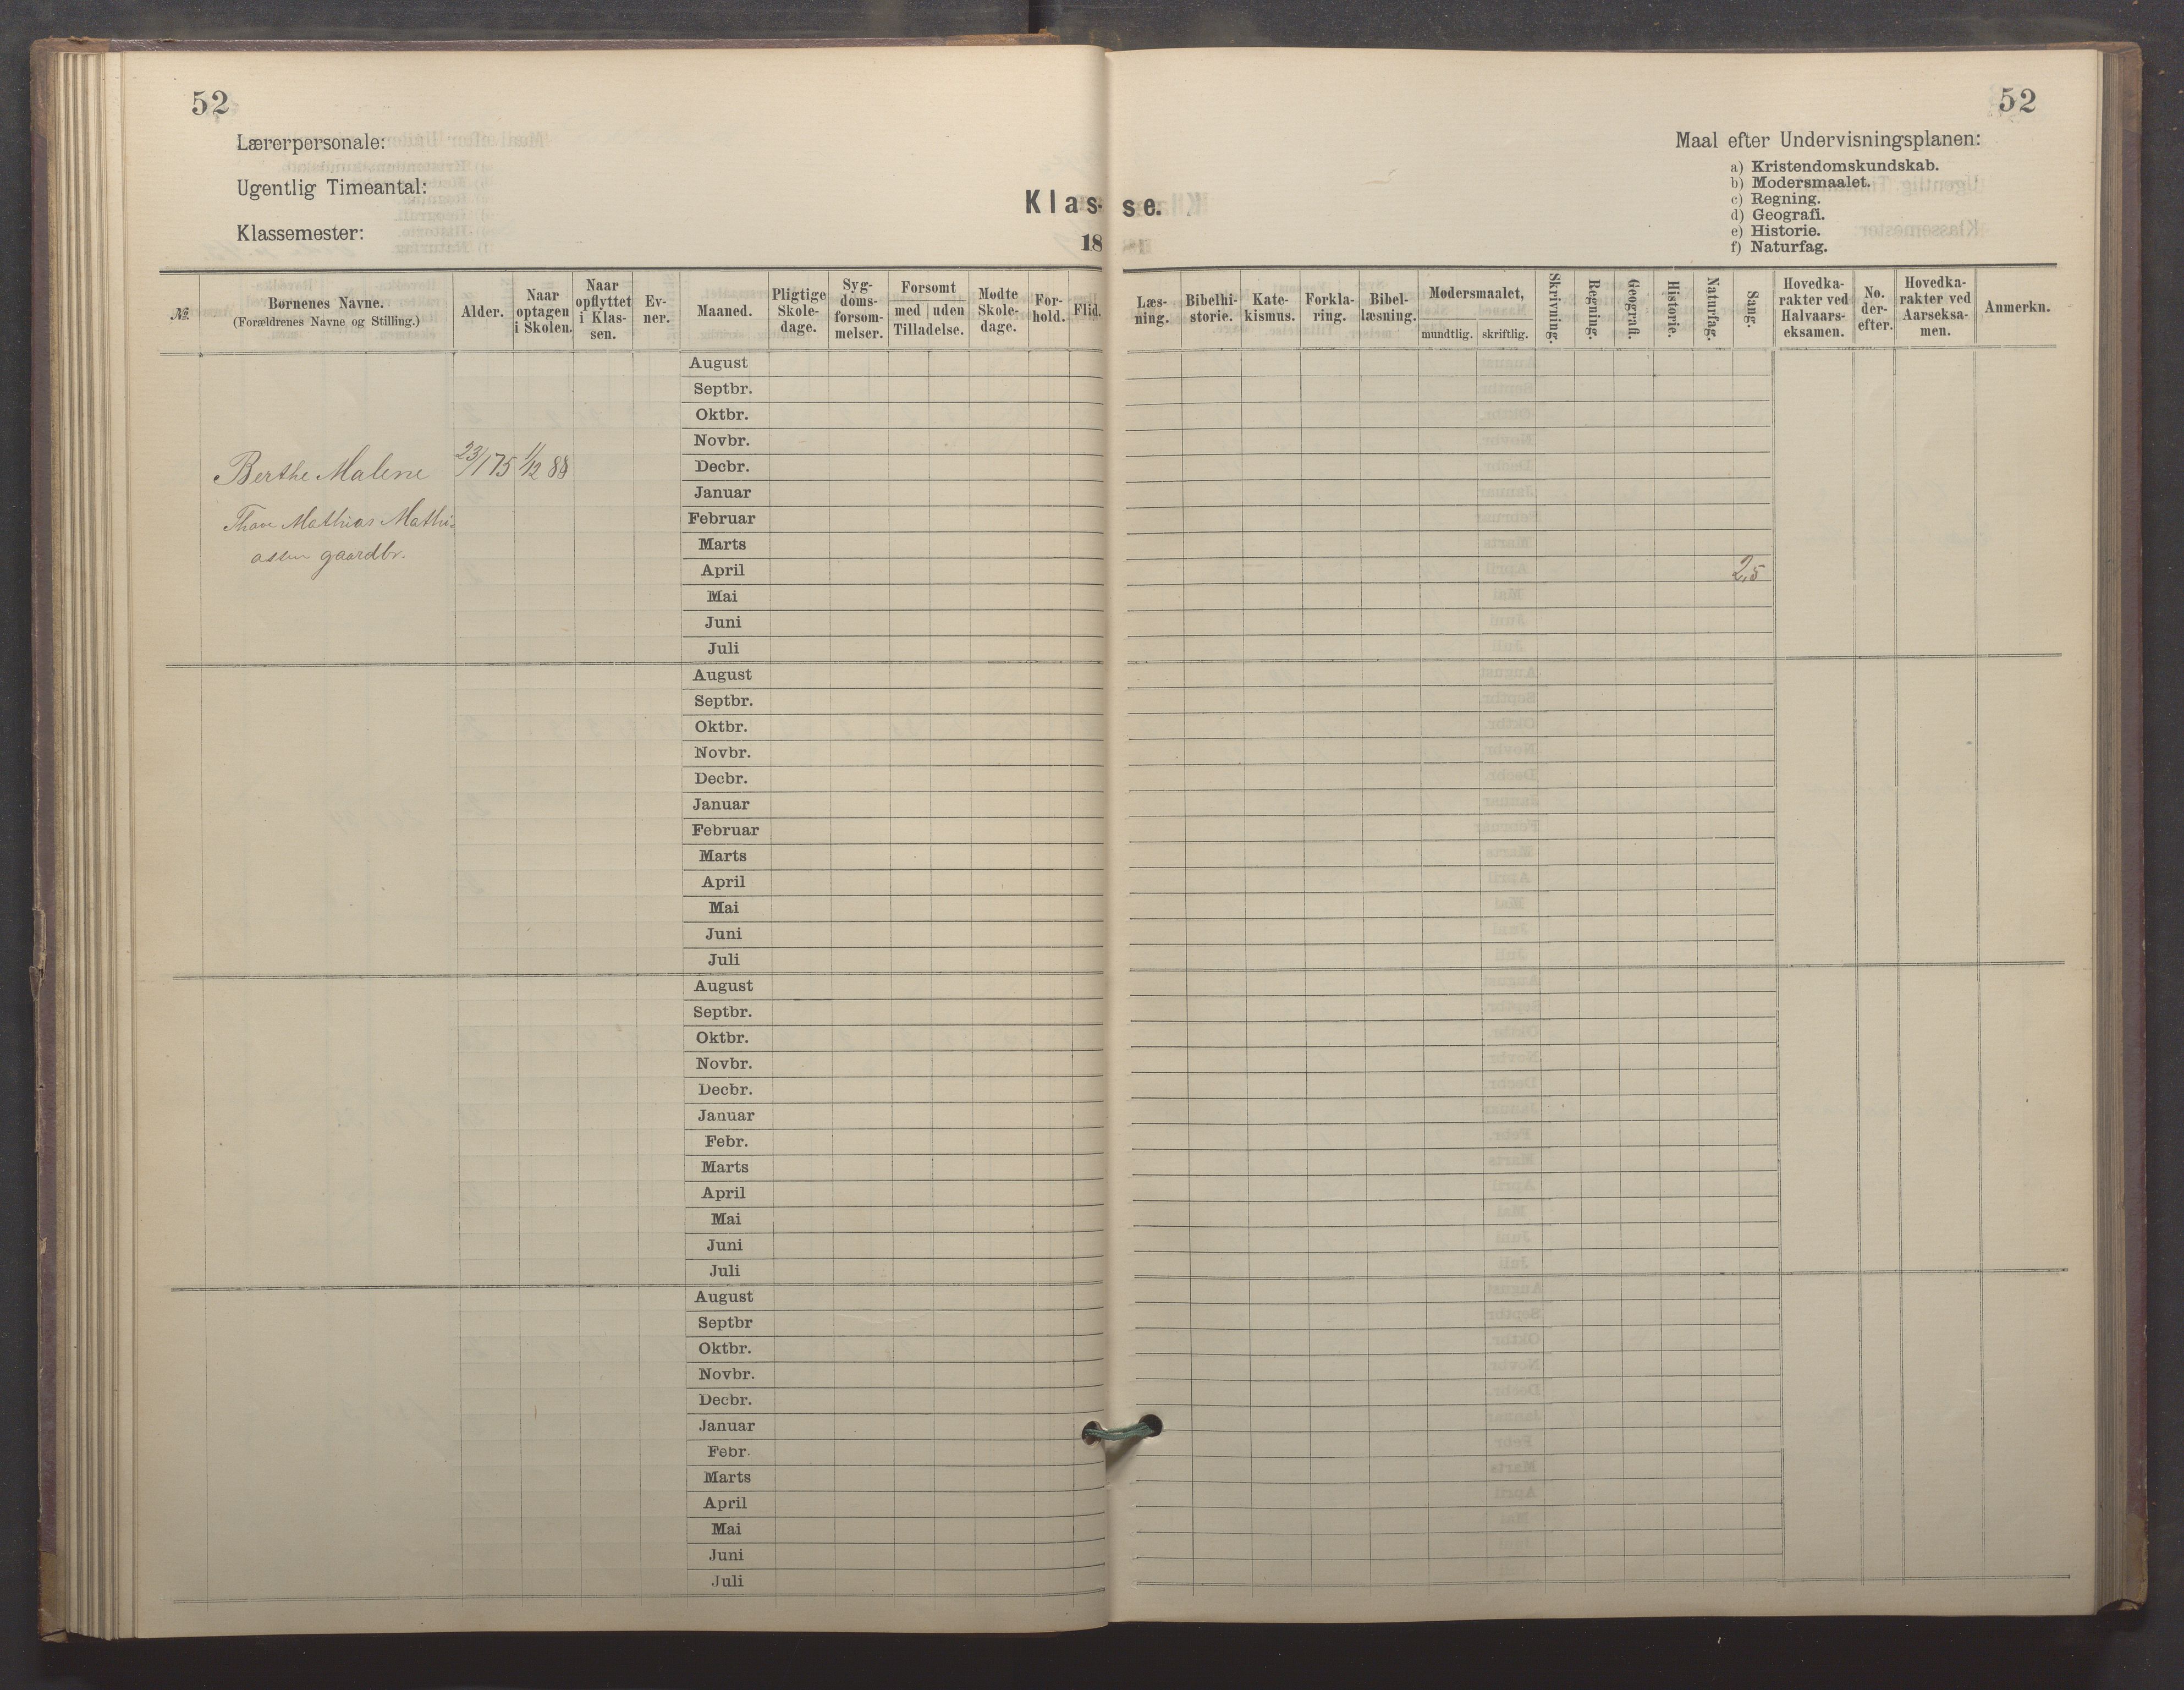 52
52
Lærerpersonale:
Ugentlig Timeantal:
Klassemester:
Klas-se.
18
Maal efter Undervisningsplanen:
a) Kristendomskundskab.
b) Modersmaalet.
c) Regning.
d) Geografi.
e) Historie.
f) Naturfag.
№
Børnenes Navne.
(Forældrenes Navne og Stilling.)
Alder.
Naar
optagen
i Skolen.
Naar
opflyttet
i Klas-
sen.
Ev-
ner.
Maaned.
Pligtige
Skole-
dage.
Syg-
doms-
forsøm-
melser.
Forsømt
med uden
Tilladelse.
Mødte
Skole-
dage.
For-
hold.
Flid.
Læs-
ning.
Bibelhi-
storie.
Kate-
kismus.
Forkla-
ring.
Bibel-
læsning.
Modersmaalet,
mundtlig. skriftlig.
Skrivning.
Regning.
Geografi.
Historie.
Naturfag.
Sang.
Hovedka-
rakter ved
Halvaars-
eksamen.
No.
der-
efter.
Hovedka-
rakter ved
Aarseksa-
men.
Anmerkn.
August
Septbr.
Oktbr.
Novbr.
Berthe Malene 23/1 75 1/12 88 Decbr.
Januar
Mathias Mathi- Februar
assen gaardbr. Marts
April 2,5
Mai
Juni
Juli
August
Septbr.
Oktbr.
Novbr.
Decbr.
Januar
Februar
Marts
April
Mai
Juni
Juli
August
Septbr.
Oktbr.
Novbr.
Decbr.
Januar
Febr.
Marts
April
Mai
Juni
Juli
August
Septbr
Oktbr.
Novbr.
Decbr.
Januar
Febr.
Marts
April
Mai
Juni
Juli